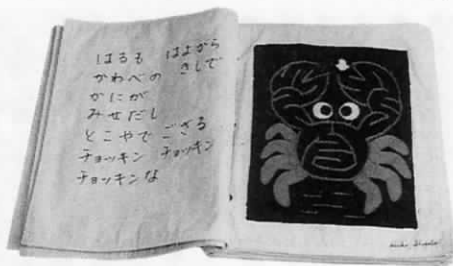 はるも はよから
かわべの きしで
かにが
みせだし
とこやで ござる
チョッキン チョッキン
チョッキンな